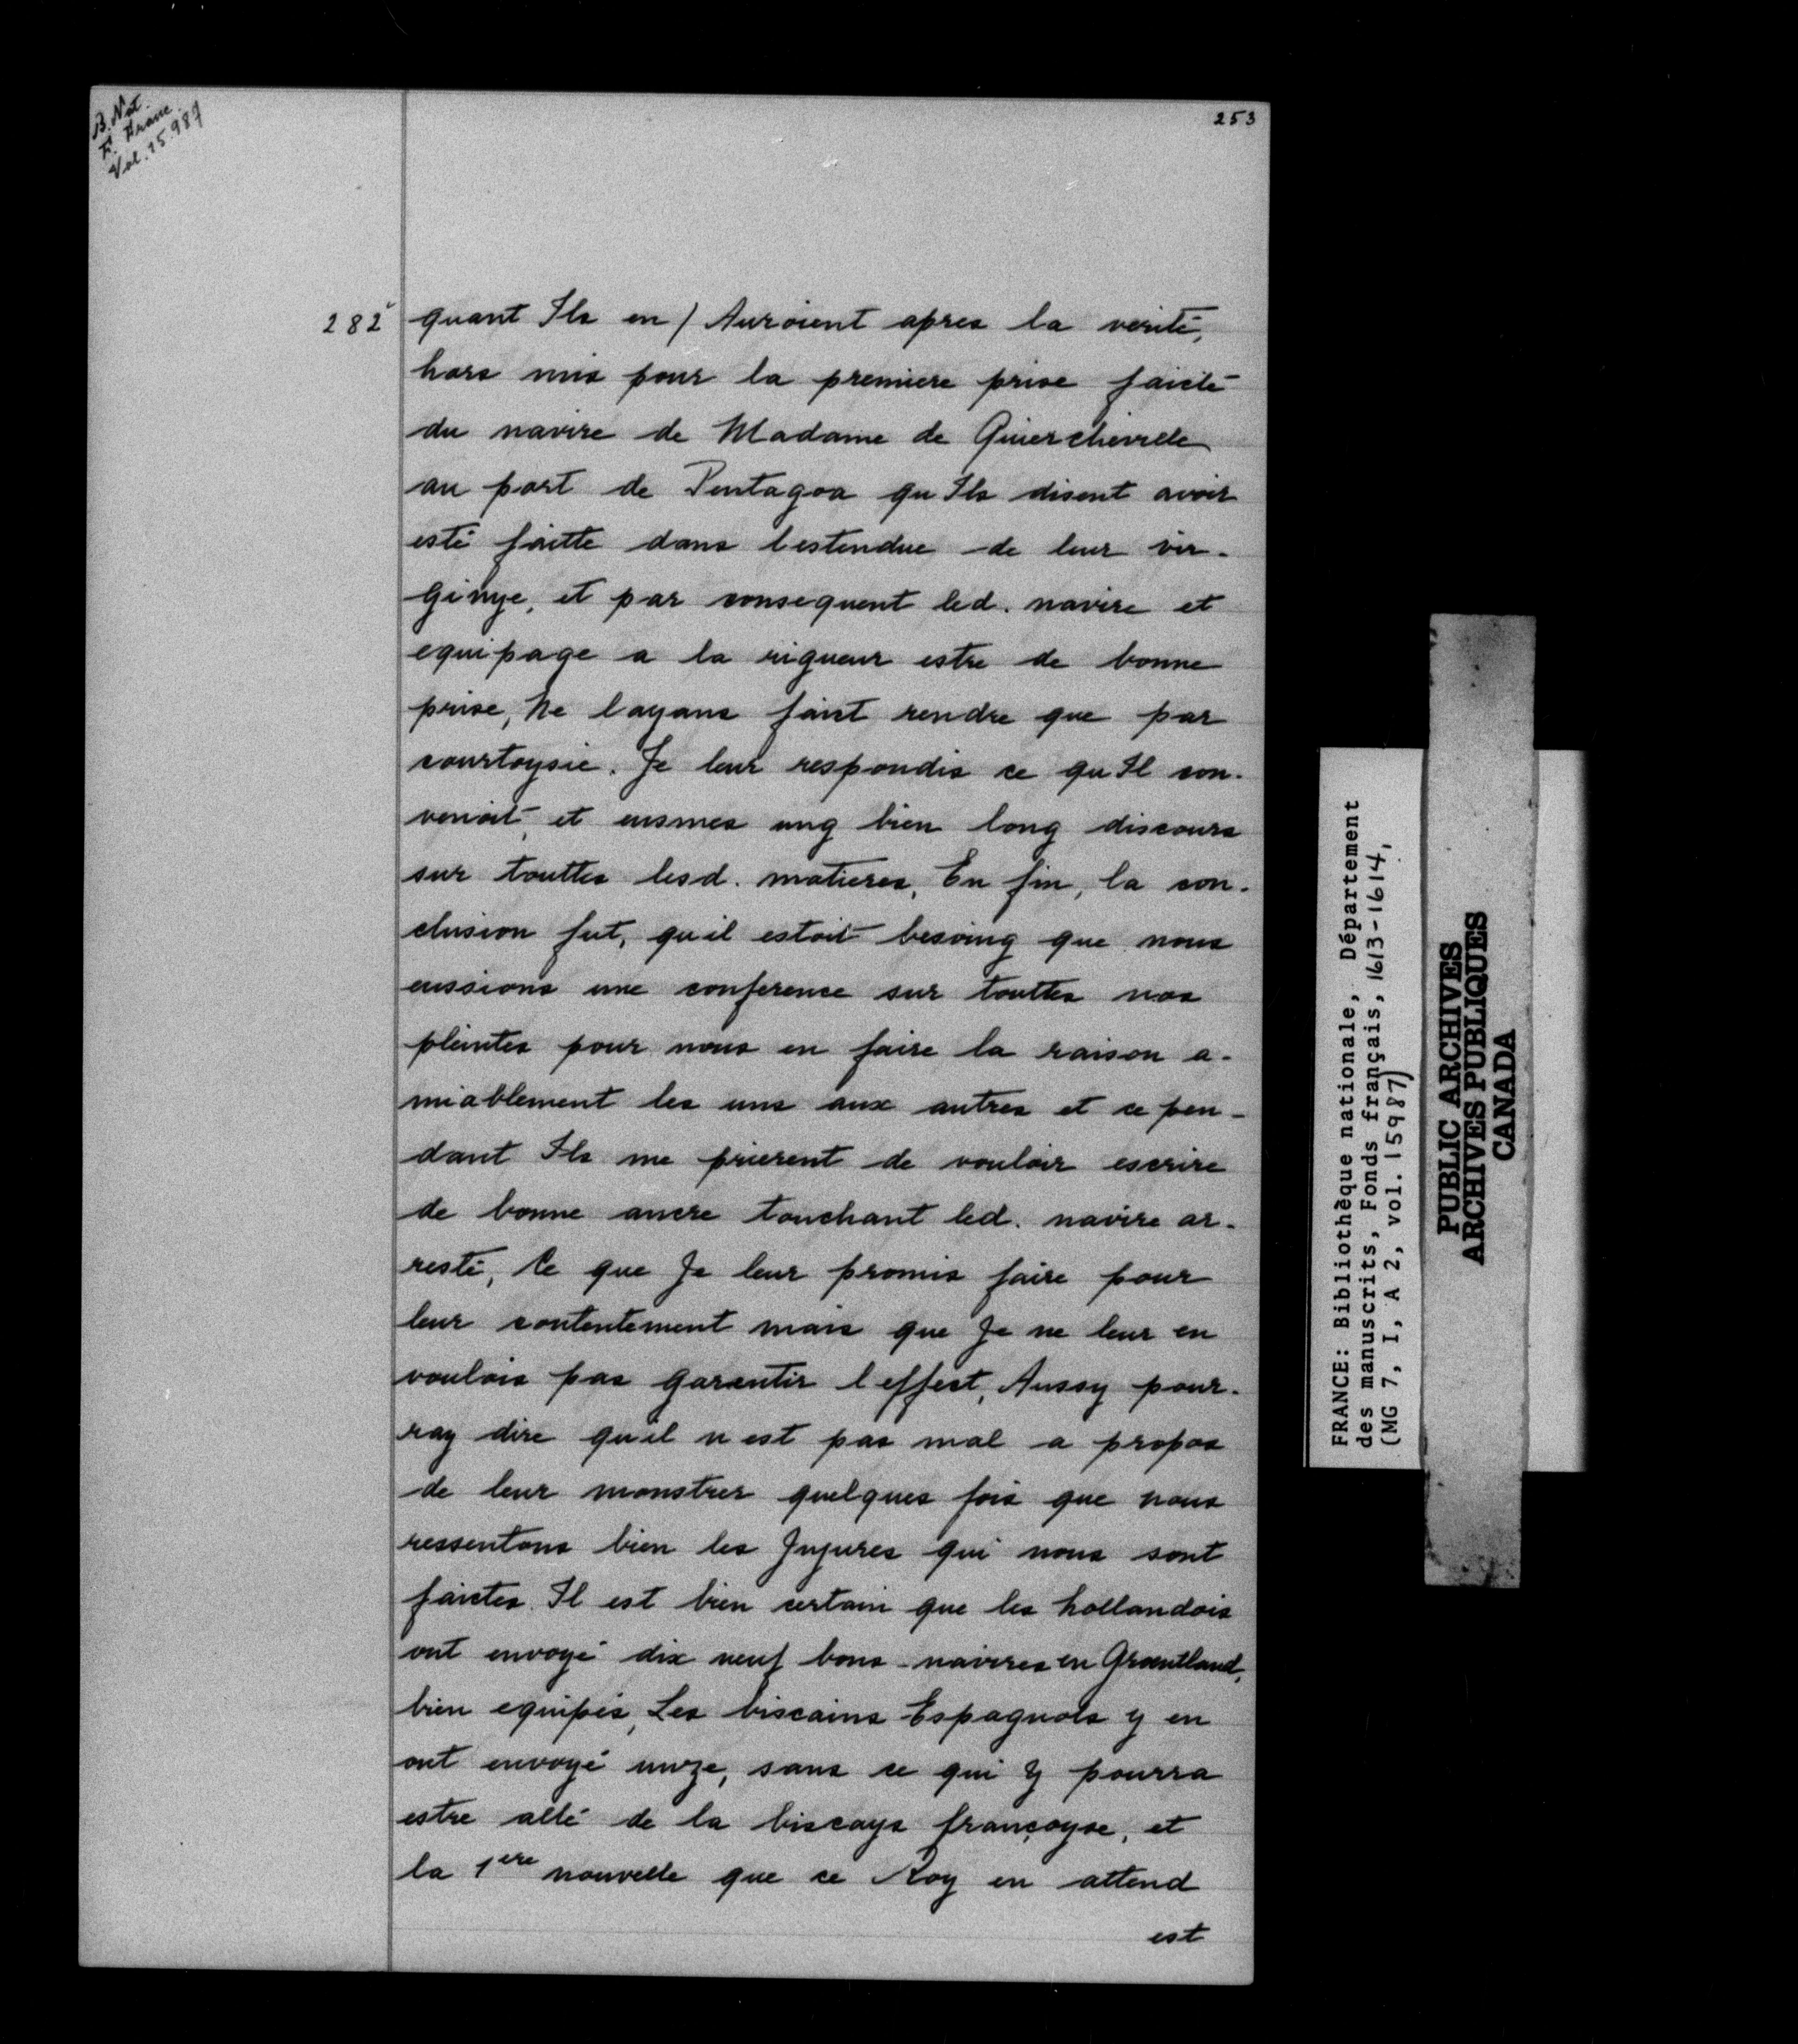 B. Nat.
F. Franc.
Vol. 15.987
253
282v quant Ils en / Auroient apres la verité,
hors mis pour la premiere prise faicte
du navire de Madame de Quiercheville
au port de Pentagoa qu Ils disent avoir
esté faitte dans l estendue de leur vir-
ginye, et par consequent led. navire et
equipage a la rigueur estre de bonne
prise, Ne layans faict rendre que par
courtoysie. Je leur respondis ce qu Il con-
venoit, et eusmes ung bien long discours
sur touttes lesd. matieres, En fin, la con-
clusion fut, quil estoit besoing que nous
eussions une conference sur touttes nos
pleintes pour nous en faire la raison a-
miablement les uns aux autres et ce pen-
dant Ils me prierent de vouloir escrire
de bonne ancre touchant led. navire ar-
resté, Ce que Je leur promis faire pour
leur contentement mais que Je ne leur en
voulois pas garentir l effect, Aussy pour-
ray dire quil n est pas mal a propos
de leur monstrer quelques fois que nous
ressentons bien les Injures qui nous sont
faictes. Il est bien certain que les hollandois
ont envoyé dix neuf bons navires en Grantland,
bien equipés, Les biscains Espagnols y en
ont envoyé unze, sans ce qui y pourra
estre allé de la biscaye françoyse, et
la 1ere nouvelle que ce Roy en attend
est
FRANCE: Bibliothèque nationale, Département
des manuscrits, Fonds français, 1613-1614,
(MG 7, I, A 2, vol. 15987)
PUBLIC ARCHIVES
ARCHIVES PUBLIQUES
CANADA